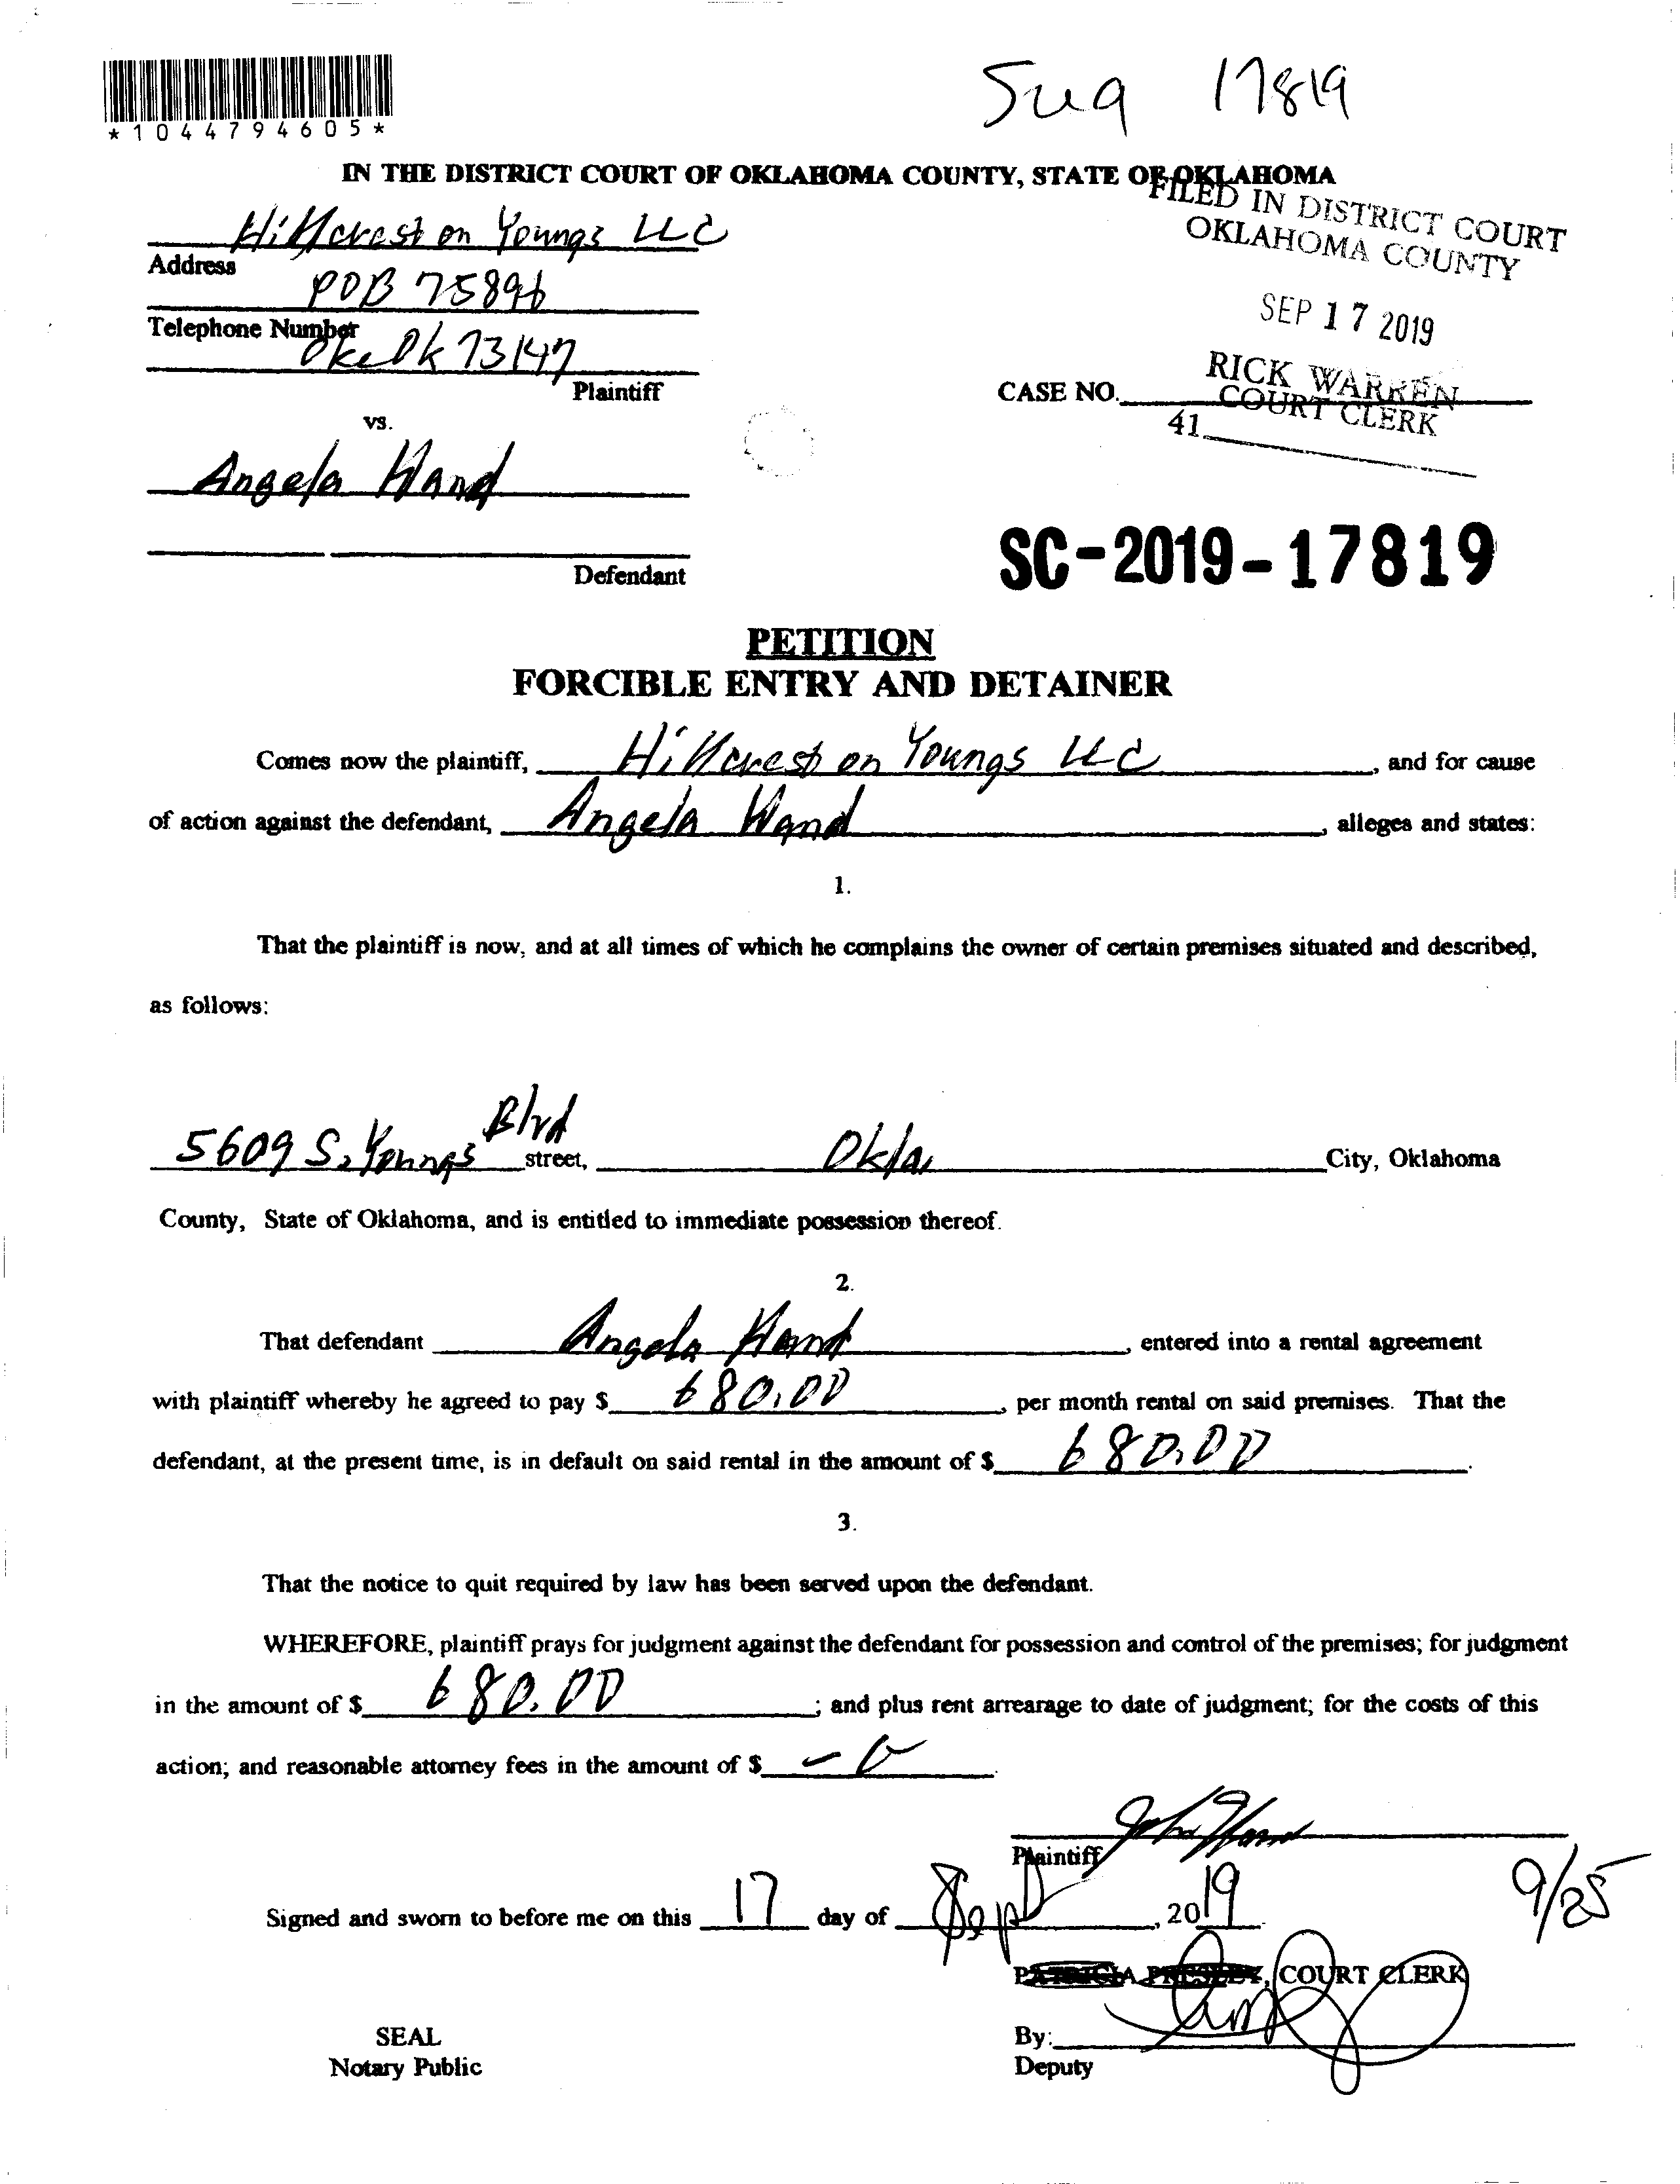 Sug 17819
*1044794605*
IN THE DISTRICT COURT OF OKLAHOMA COUNTY, STATE OF OKLAHOMA
FILED IN DISTRICT COURT
OKLAHOMA COUNTY
SEP 17 2019
RICK WARREN
COURT CLERK
41
Hillcrest on Youngs LLC
Address
POB 75896
Telephone Number
Ok 73147
Plaintiff
CASE NO.
vs.
Angela Hand
Defendant
SC-2019-17819
PETITION
FORCIBLE ENTRY AND DETAINER
Comes now the plaintiff, Hillcrest on Youngs LLC, and for cause
of action against the defendant, Angela Hand, alleges and states:
1.
That the plaintiff is now, and at all times of which he complains the owner of certain premises situated and described,
as follows:
5609 S. Youngs Blvd street, Okla City, Oklahoma
County, State of Oklahoma, and is entitled to immediate possession thereof.
2.
That defendant Angela Hand, entered into a rental agreement
with plaintiff whereby he agreed to pay $ 680.00, per month rental on said premises. That the
defendant, at the present time, is in default on said rental in the amount of $ 680.00.
3.
That the notice to quit required by law has been served upon the defendant.
WHEREFORE, plaintiff prays for judgment against the defendant for possession and control of the premises; for judgment
in the amount of $ 680.00; and plus rent arrearage to date of judgment; for the costs of this
action; and reasonable attorney fees in the amount of $
Plaintiff
9/25
Signed and sworn to before me on this 17 day of Sept, 2019
, COURT CLERK
SEAL
Notary Public
By:
Deputy